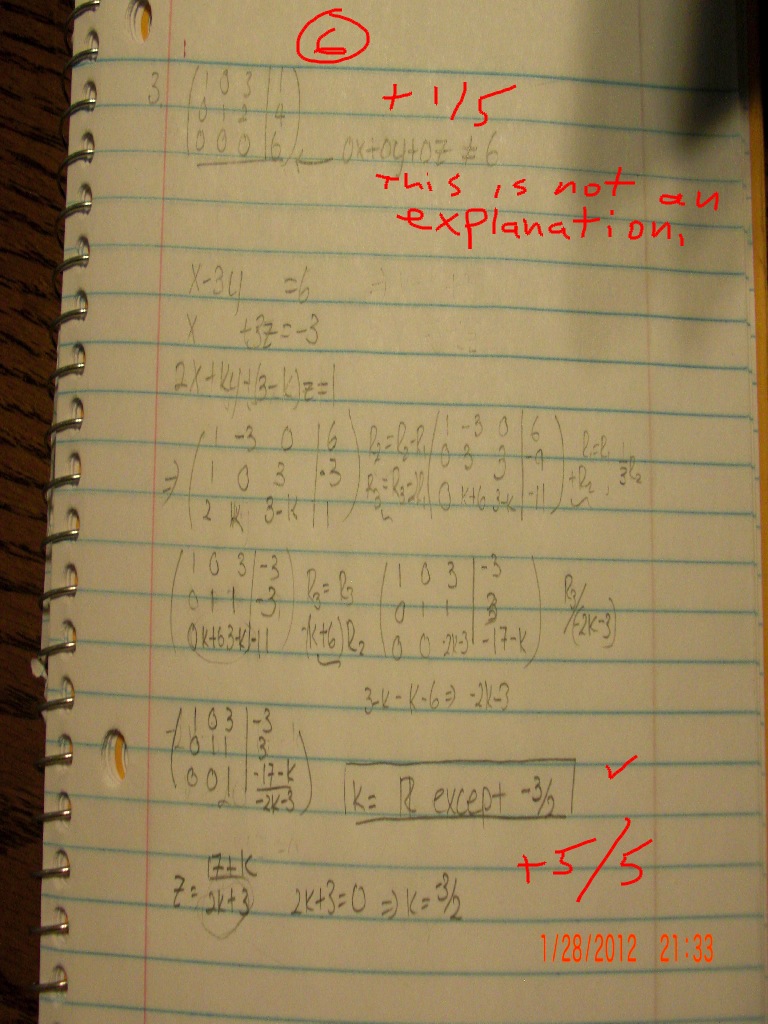 6
3. ( 1 0 3 | 1
+ 1/5
0 1 2 | 4
0 0 0 | 6 ) ← 0x+0y+0z ≠ 6
This is not an
explanation.
x-3y =6
x +3z=-3
2x+ky+(3-k)z=1
⇒ ( 1 -3 0 | 6
1 0 3 | -3
2 k 3-k | 1 ) R2=R2-R1 R3=R3-2R1
( 1 -3 0 | 6
0 3 3 | -9
0 k+6 3-k | -11 ) +R2, 1/3R2
( 1 0 3 | -3
0 1 1 | -3
0 k+6 3-k | -11 ) R3=R3 -(k+6)R2
( 1 0 3 | -3
0 1 1 | 3
0 0 -2k-3 | -17-k ) R3/(-2k-3)
3-k-k-6 ⇒ -2k-3
( 1 0 3 | -3
0 1 1 | 3
0 0 1 | -17-k/-2k-3 )
k= ℝ except -3/2 ✓
+5/5
z= 17+k/2k+3 2k+3=0 ⇒ k=-3/2
1/28/2012 21:33